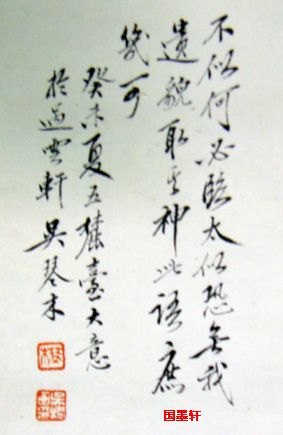 不似何必臨太似恐無我
遺貌取其神此語庶
幾可
癸未夏五 麓臺大意
於過雲軒 吳琴木
国墨轩